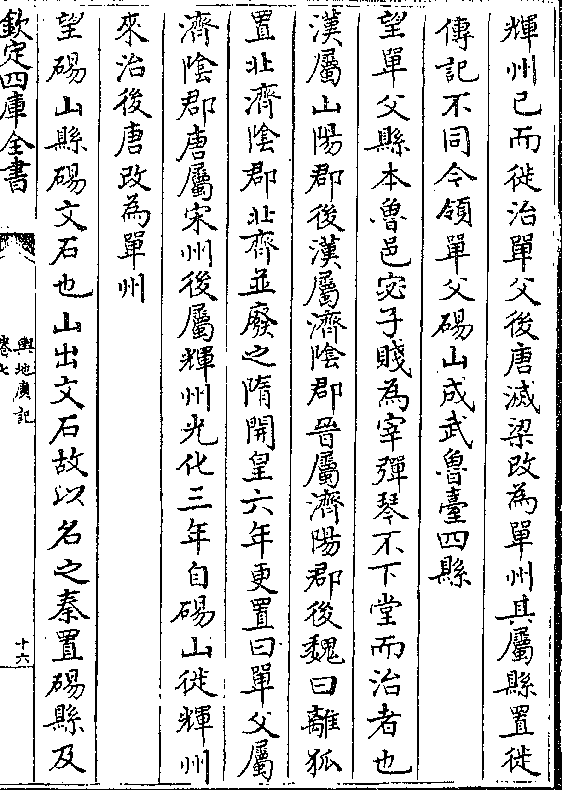 輝州已而徙治單父後唐滅梁改為單州其屬縣置徙
傳記不同今領單父碭山成武魯臺四縣
望單父縣本魯邑宓子賤為宰彈琴不下堂而治者也
漢屬山陽郡後漢屬濟陰郡晉屬濟陽郡後魏曰離狐
置北濟陰郡北齊並廢之隋開皇六年更置曰單父屬
濟陰郡唐屬宋州後屬輝州光化三年自碭山徙輝州
來治後唐改為單州
望碭山縣碭文石也山出文石故以名之秦置碭縣及
欽定四庫全書
輿地廣記
卷七
十六